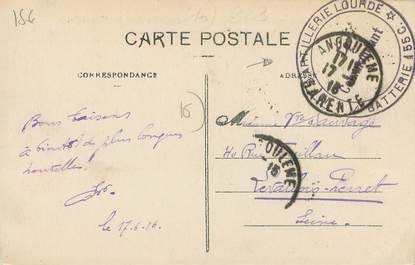 156
CARTE POSTALE
CORRESPONDANCE
ADRESSE
ARTILLERIE LOURDE
BATTERIE
155 C.
ANGOULEME
17
CHARENTE
16
Bons baisers
à bientôt de plus longues
nouvelles.
le 17.6.16
Madame Vve Sauvage
40 Rue
Levallois-Perret
Seine.
OULEME